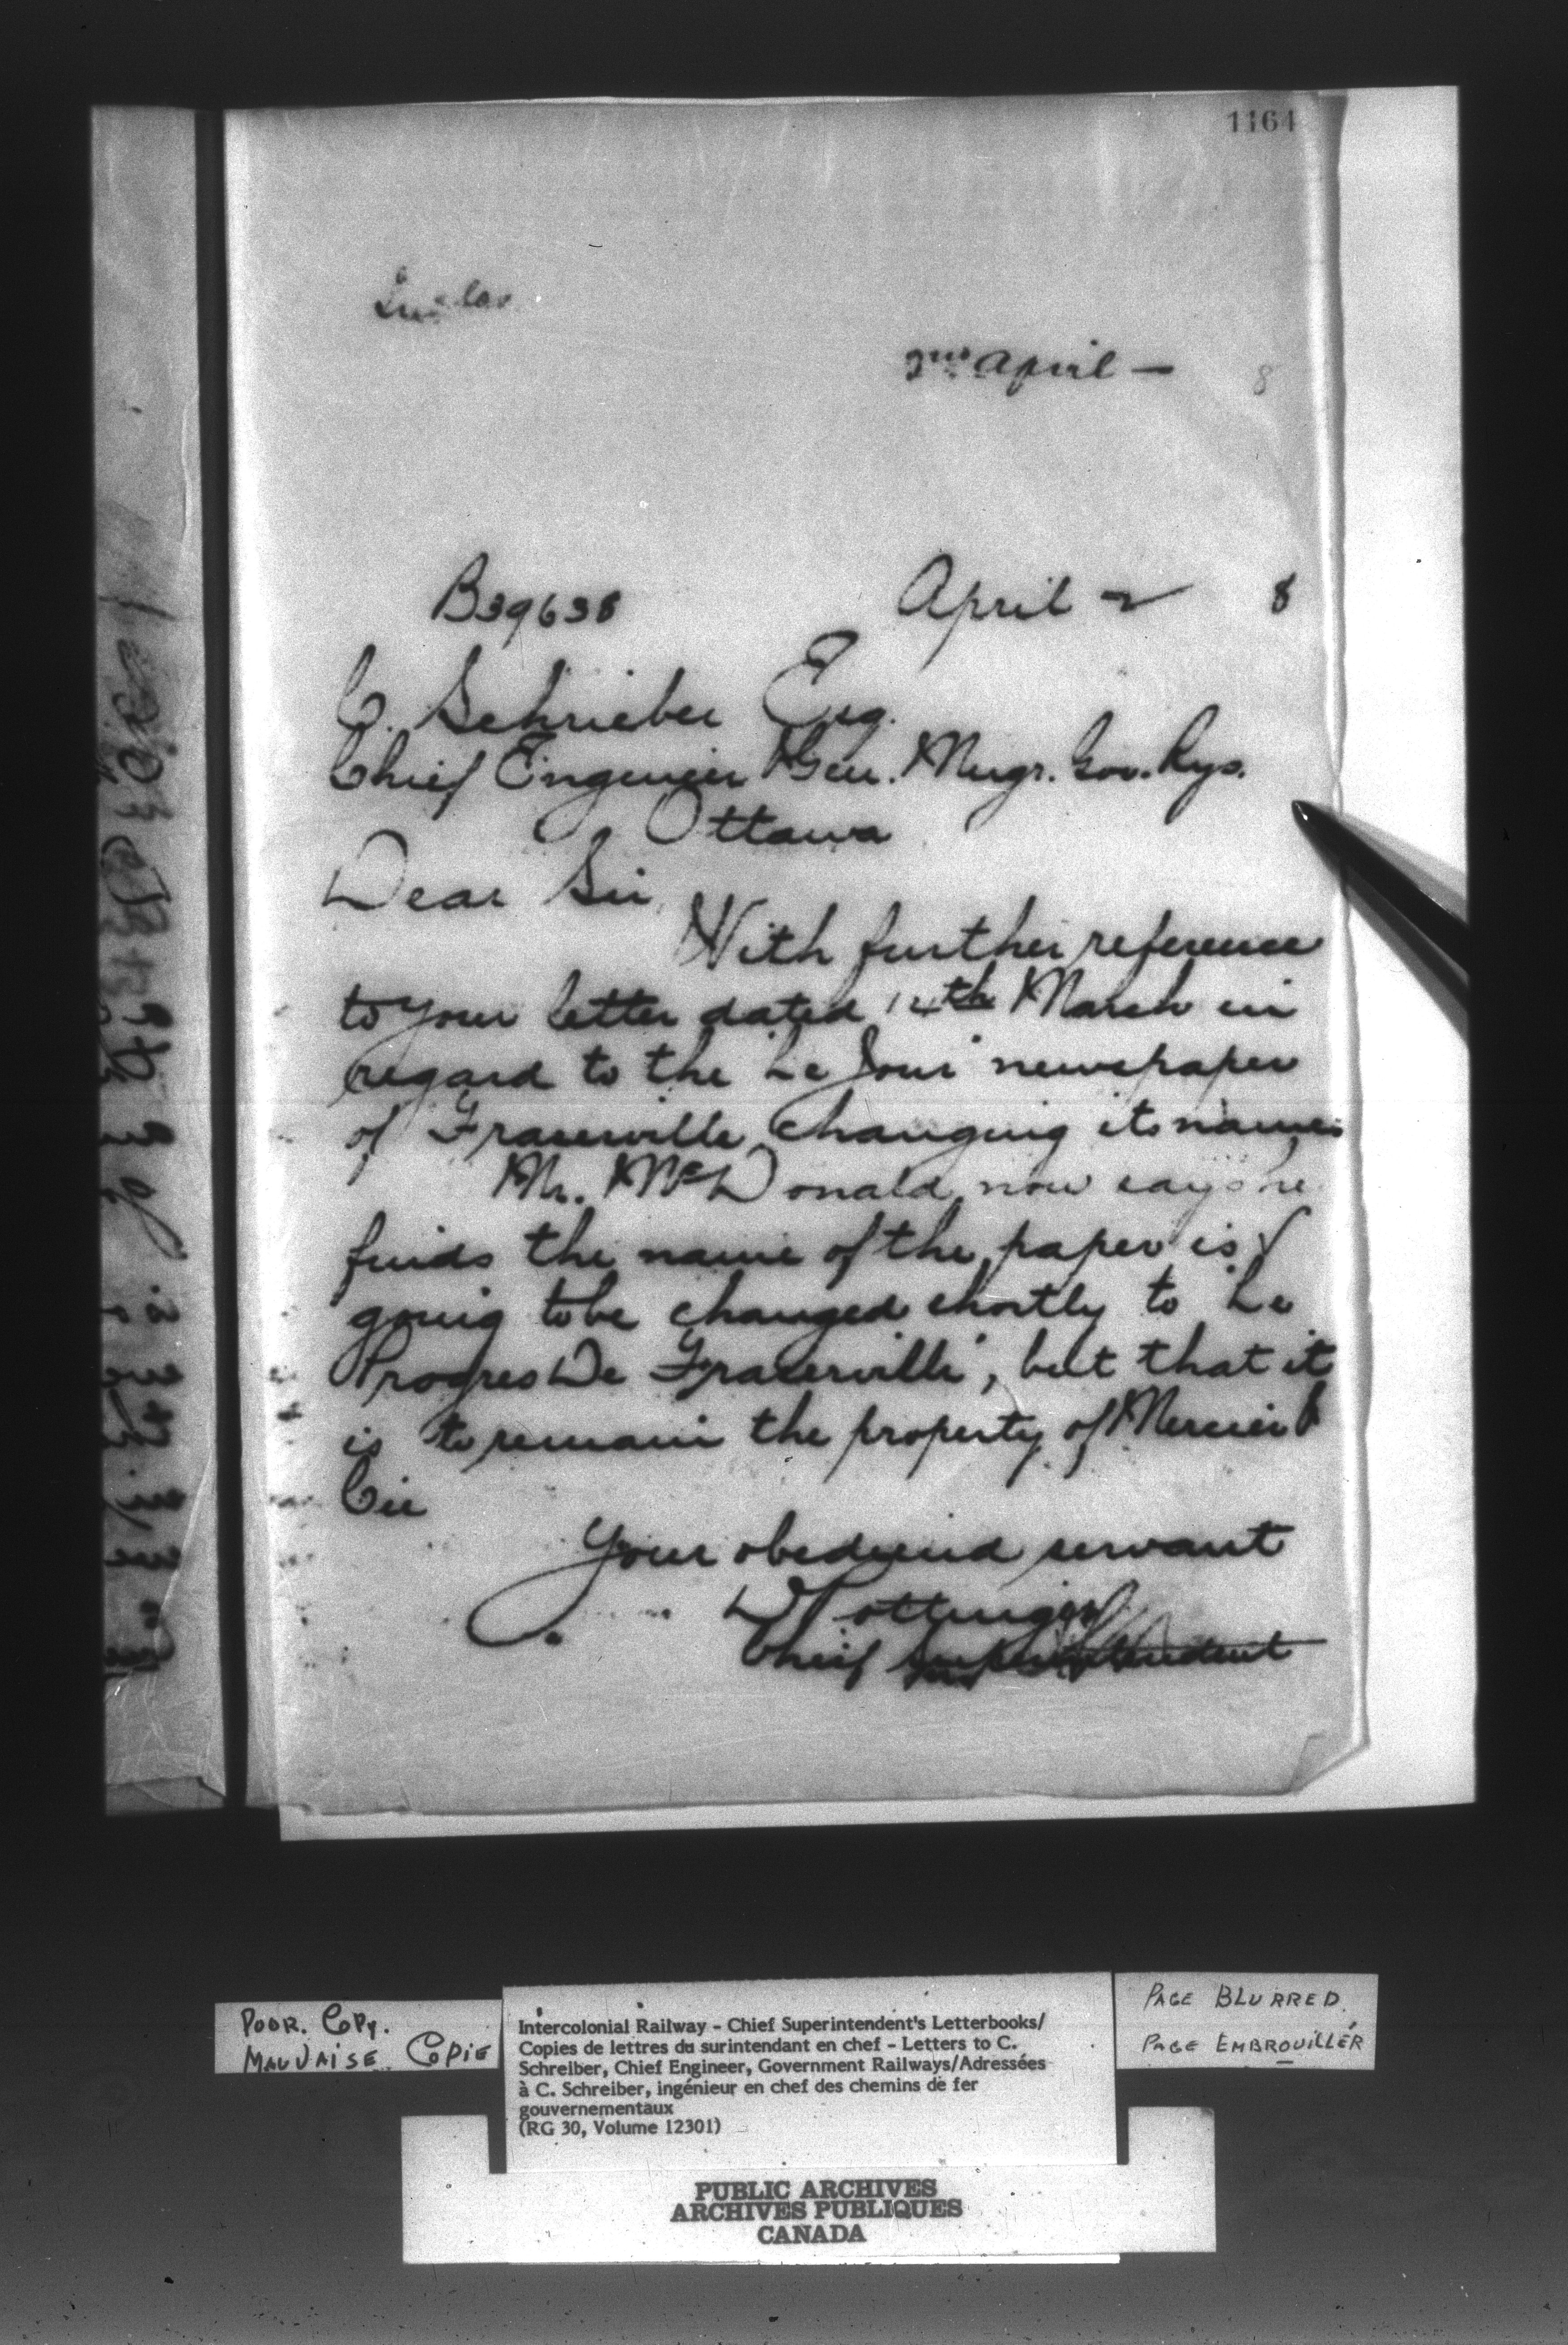 1164
2nd April - 8
B39638 April 2 8
C. Schrieber Esq.
Chief Engineer & Gen. Mngr. Gov. Rys.
Ottawa
Dear Sir,
With further reference
to your letter dated 14th March in
regard to the "Le Jour" newspaper
of Fraserville changing its name,
Mr. McDonald now says he
finds the name of the paper is
going to be changed shortly to "Le
Progres De Fraserville", but that it
is to remain the property of Mercier &
Cie
Your obediend servant
D Pottinger
Chief Superintendent
POOR. COPY.
MAUVAISE COPIE
Intercolonial Railway - Chief Superintendent's Letterbooks/
Copies de lettres du surintendant en chef - Letters to C.
Schreiber, Chief Engineer, Government Railways/Adressées
à C. Schreiber, ingénieur en chef des chemins de fer
gouvernementaux
(RG 30, Volume 12301)
PAGE BLURRED
PAGE EMBROUILLÉR
PUBLIC ARCHIVES
ARCHIVES PUBLIQUES
CANADA